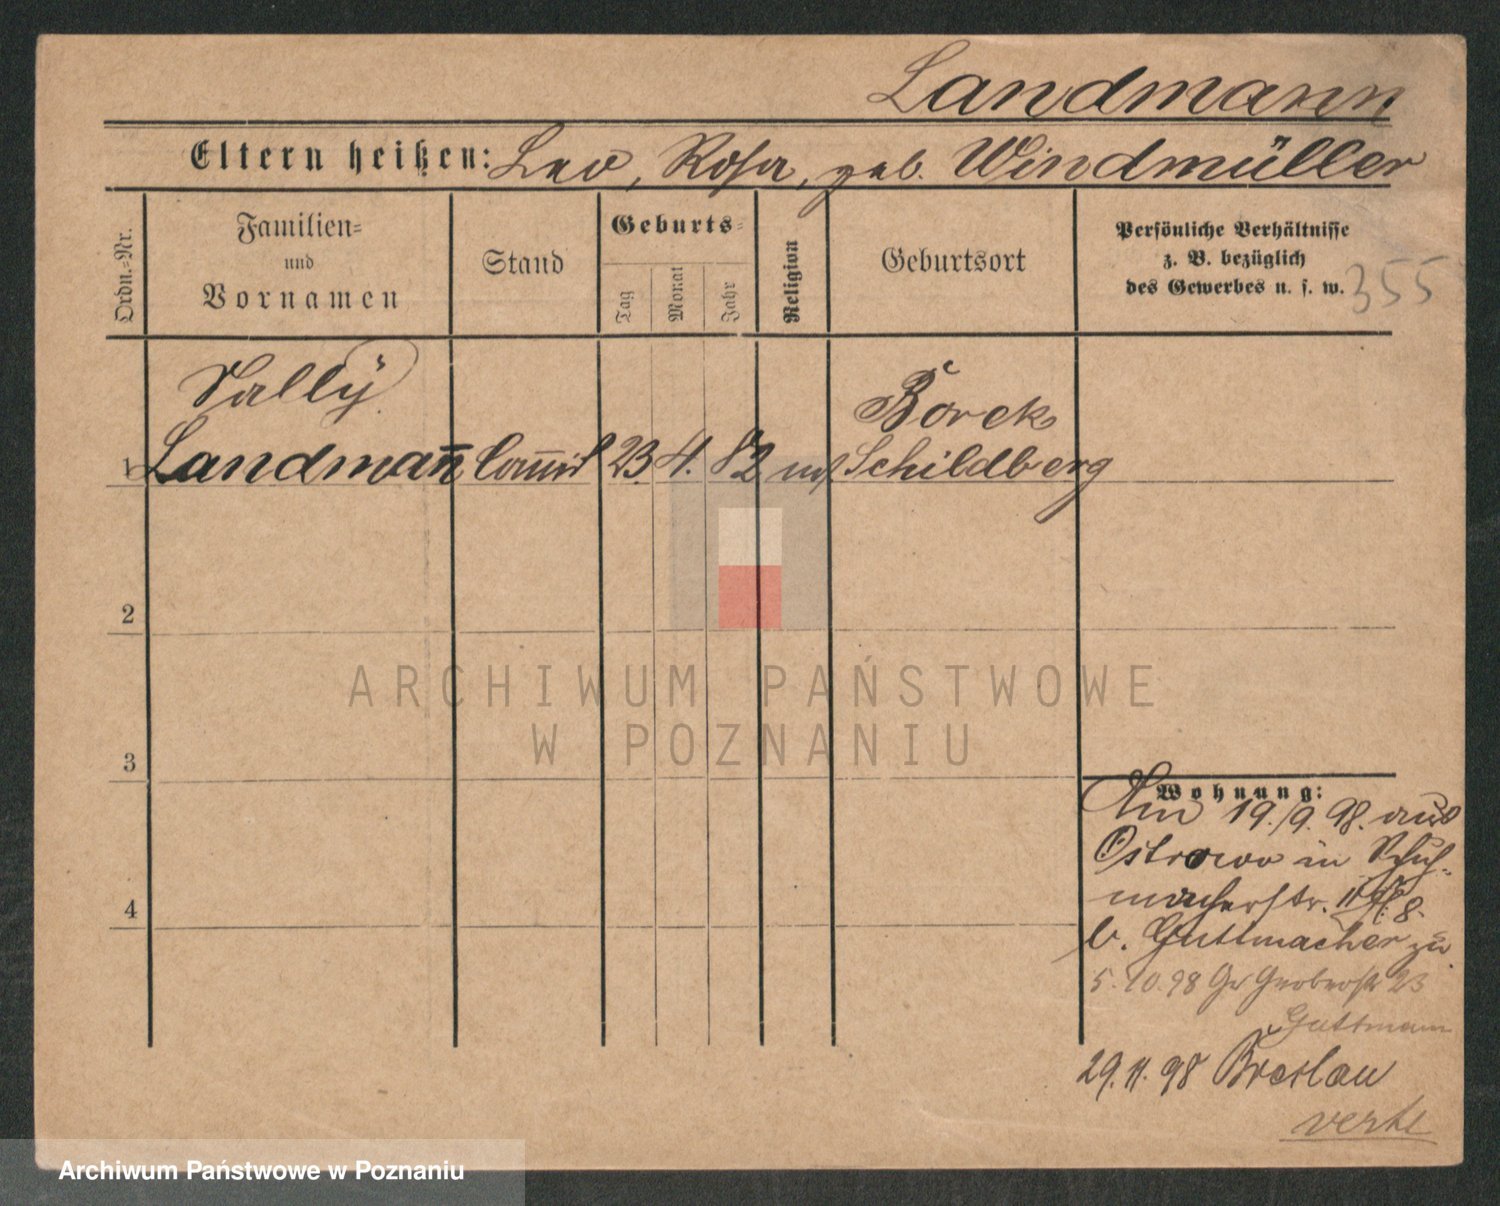 Landmann
Eltern heißen: Leo, Rosa, geb. Windmüller
Ordn.-Nr.
Familien-
und
Vornamen
Stand
Geburts-
Tag
Monat
Jahr
Religion
Geburtsort
Persönliche Verhältnisse
z. B. bezüglich
des Gewerbes u. s. w.
355
Sally
Borek
1 Landmann Commis 23. 4. 82 mos Schildberg
2
ARCHIWUM PAŃSTWOWE
W POZNANIU
3
Wohnung:
Am 19./9. 98. aus
Ostrowo in Schuh-
macherstr. 8.
b. Guttmacher zu
5.10.98 Gr Gerberstr 23
Guttmann
4
29.11.98 Breslau
verte
Archiwum Państwowe w Poznaniu